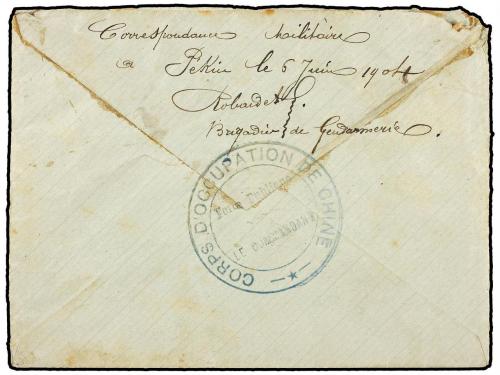 Correspondance Militaire
a Pekin le 6 Juin 1904
Robardet
Brigadier de Gendarmerie.
CORPS D'OCCUPATION DE CHINE
Force Publique
LE COMMANDANT